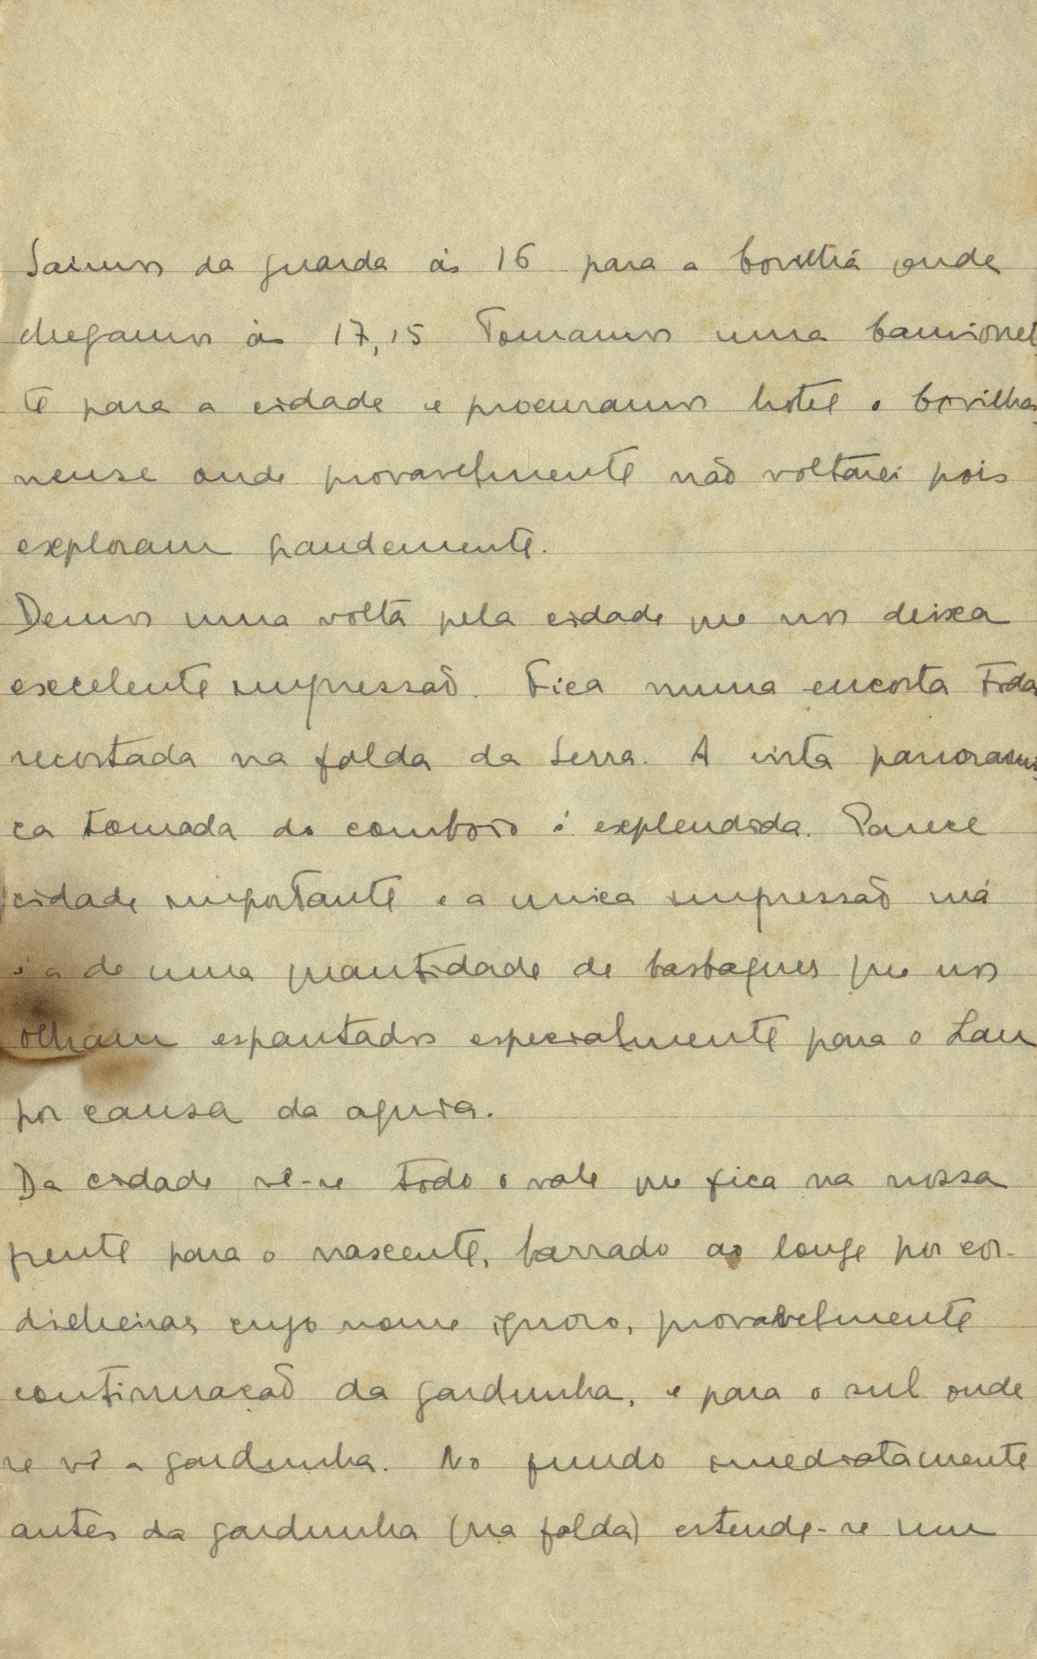 Saimos da guarda ás 16 para a Covilhã onde
chegamos ás 17,15 Tomamos uma camionet
te para a cidade e procuramos hotel o Covilha
nense onde provavelmente não voltarei pois
exploram grandemente.
Demos uma volta pela cidade que nos deixa
excelente impressaõ. Fica numa encosta toda
recostada na falda da Serra. A vista panorami
ca tomada do comboio é explendida. Parece
cidade importante e a unica impressaõ má
é a de uma quantidade de basbaques que nos
olham espantados especialmente para o Lau
por causa da aguia.
Da cidade vê-se todo o vale que fica na nossa
frente para o nascente, barrado ao longe por cor-
dilheiras cujo nome ignoro, provavelmente
continuaçaõ da gardunha, e para o sul onde
se vê a gardunha. No fundo imediatamente
antes da gardunha (na falda) estende-se um